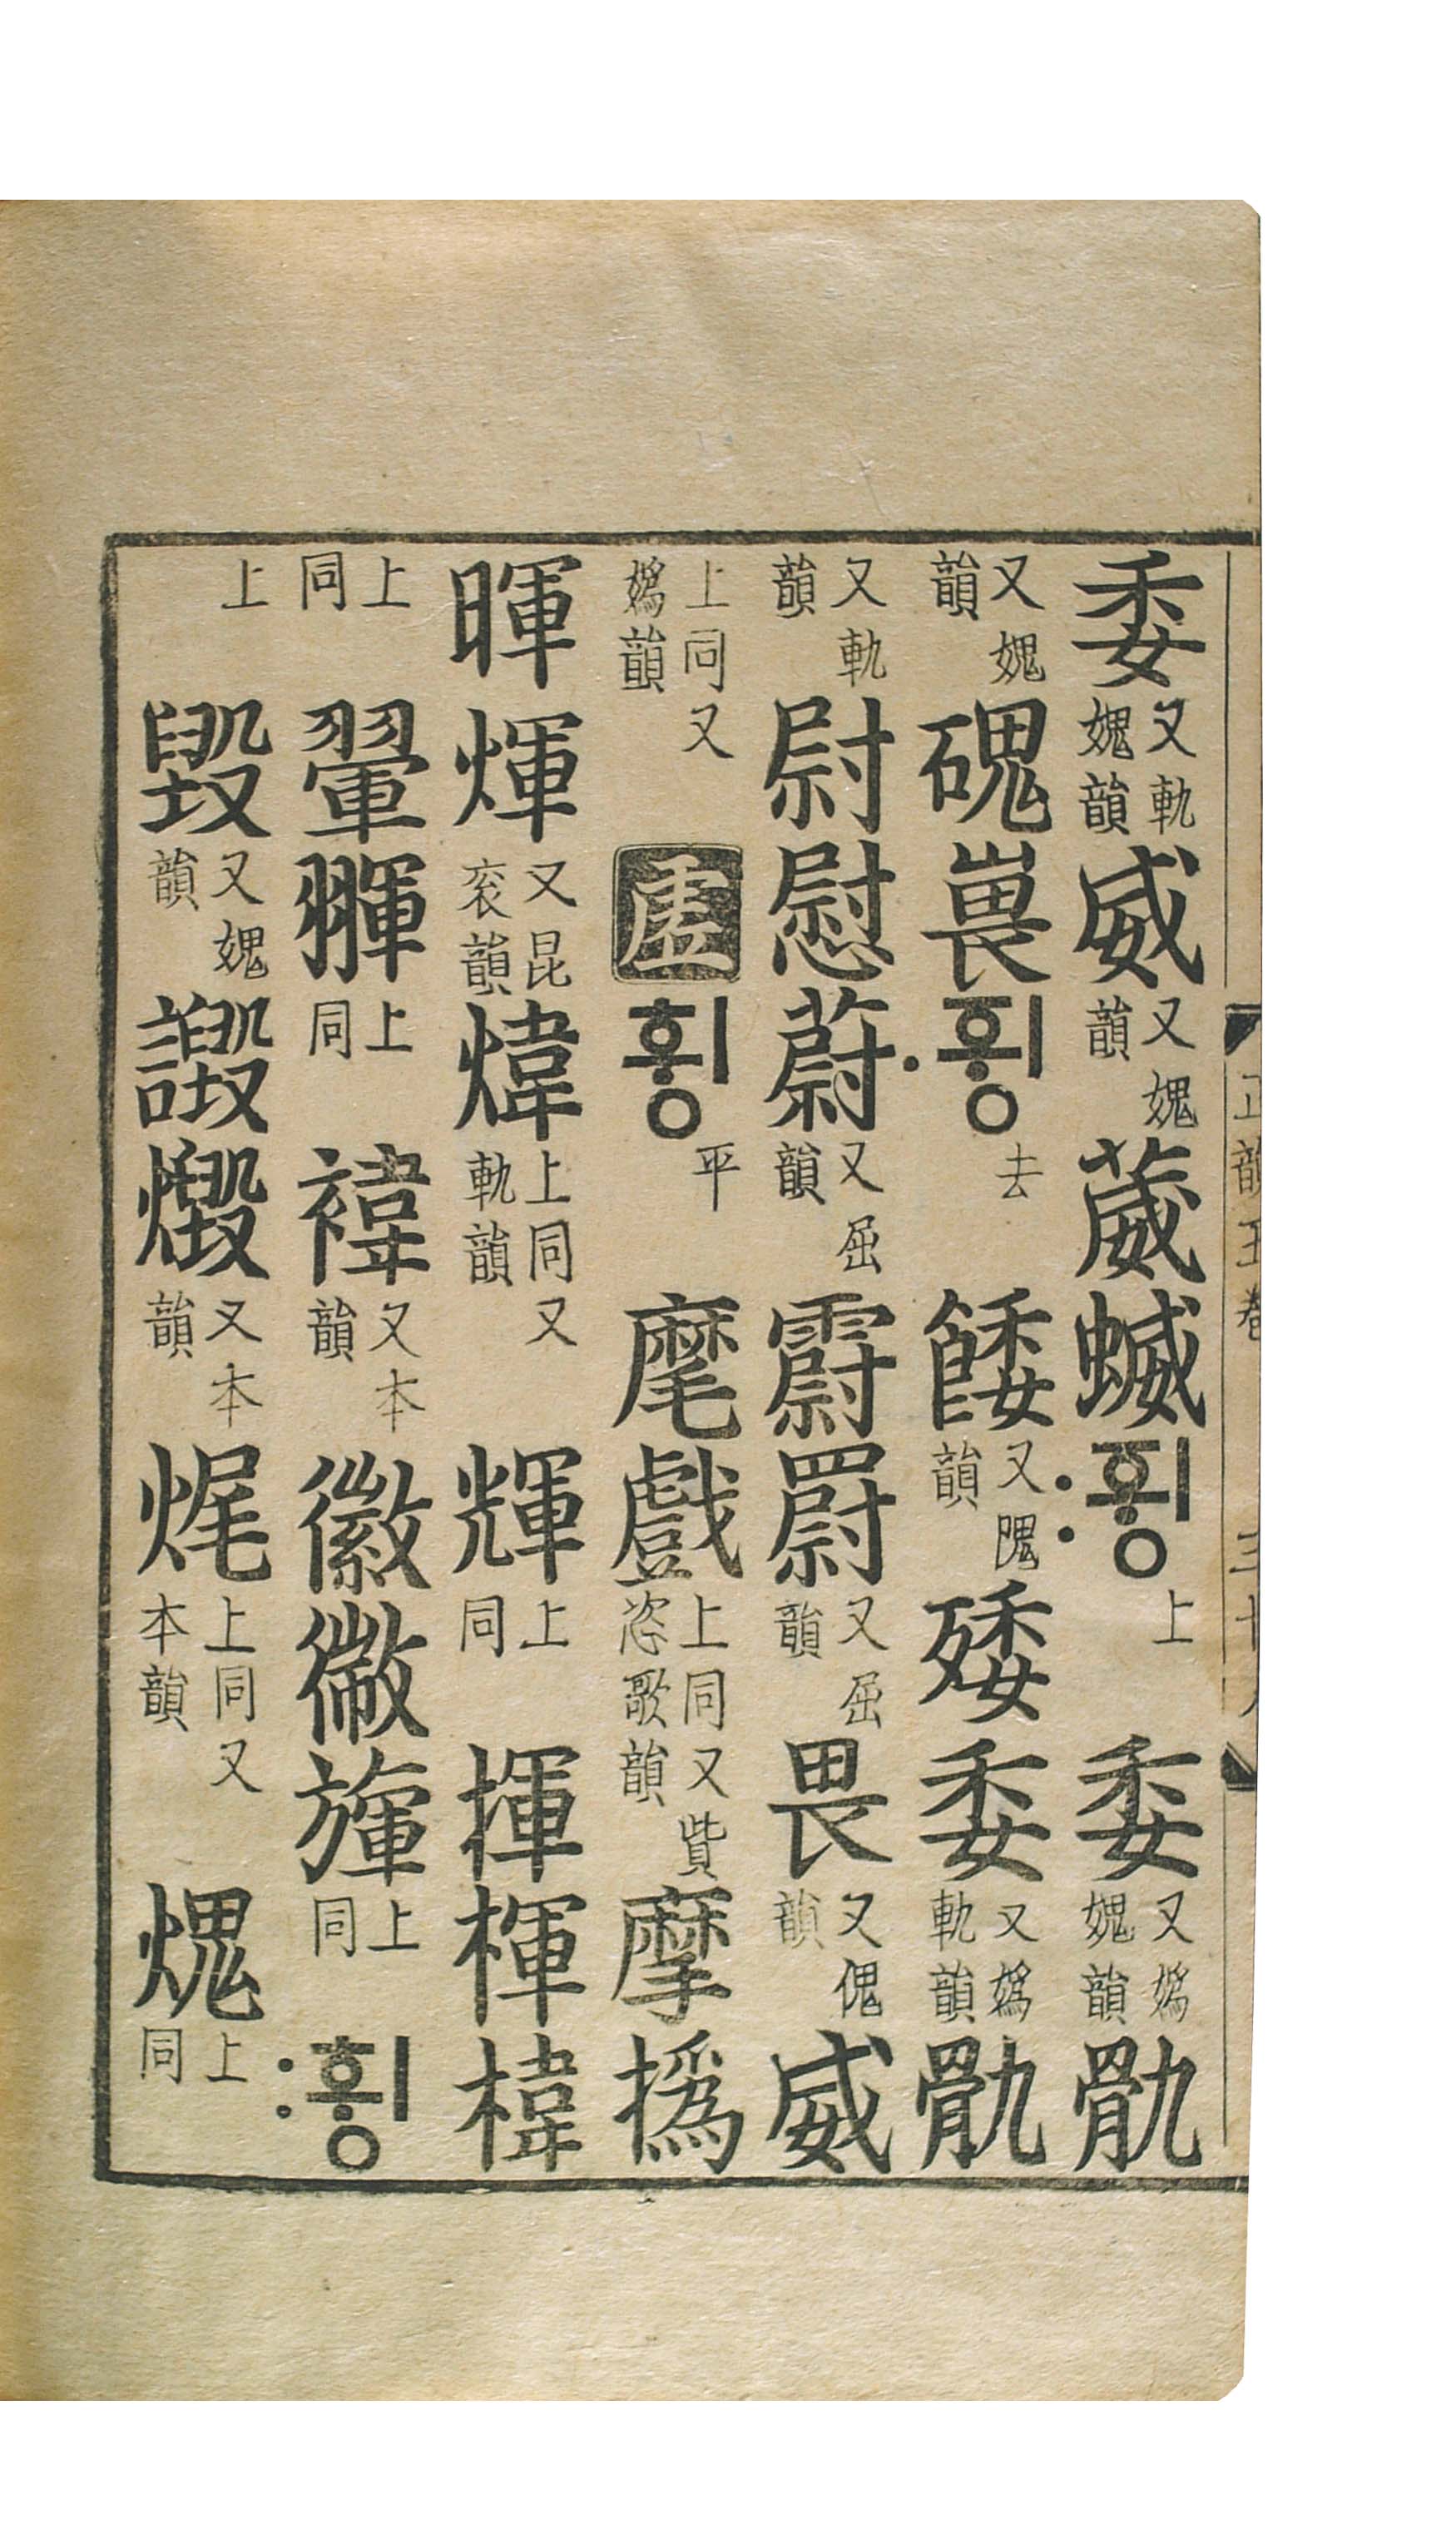 正韻五卷 三十
委又軌媿韻威又媿韻葳蝛〯ᅙᅱᆼ上委又媯媿韻骩
又媿韻磈嵔〮ᅙᅱᆼ去餧又隗韻㱣委又媯軌韻骩
又軌韻尉慰蔚又屈韻霨罻又屈韻畏又傀韻威
上同又媯韻虛휭平麾戲上同又貲恣歌韻摩撝
暉煇又昆袞韻煒上同又軌韻輝上同揮楎椲
上同翬上同褘又本韻徽幑上同〯휭
上毀又媿韻譭燬又本韻上同又本韻上同